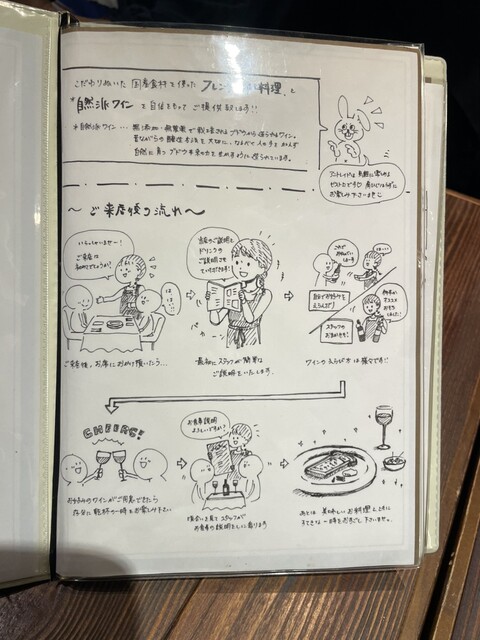 こだわりぬいた 国産食材を使った フレンチ 料理、と
"自然派ワイン を自信をもって ご提供致します!!
*自然派ワイン … 無添加・無農薬で栽培されるブドウから造られるワイン。
昔ながらの醸造方法を大切に、なるべく人の手を加えず
自然に育つブドウ本来の力を
造られています。
気軽に楽しめる
お楽しみ下さいませ
〜ご来店後の流れ〜
いらっしゃいませー!
ご来店は
初めてでしょうか?
はい
当店のご説明と
ドリンクの
ご説明させて
いただきます!
パカーン
これで
お願いしまーす
はーい
自分でお好みを
えらんだり
スタッフの
おまかせも!
オススメ
ご来店後、お席におかけ頂いたら…
最初にスタッフが簡単な
ご説明をいたします。
ワインのえらび方は様々です♡
CHEERS!
お食事説明
よろしいですか?
お好みのワインがご用意できたら
存分に乾杯の一時をお楽しみ下さい
頃合いを見てスタッフが
お食事の説明をしに参ります
あとは、美味しいお料理と共に
すてきな一時をお過ごし下さいませ。